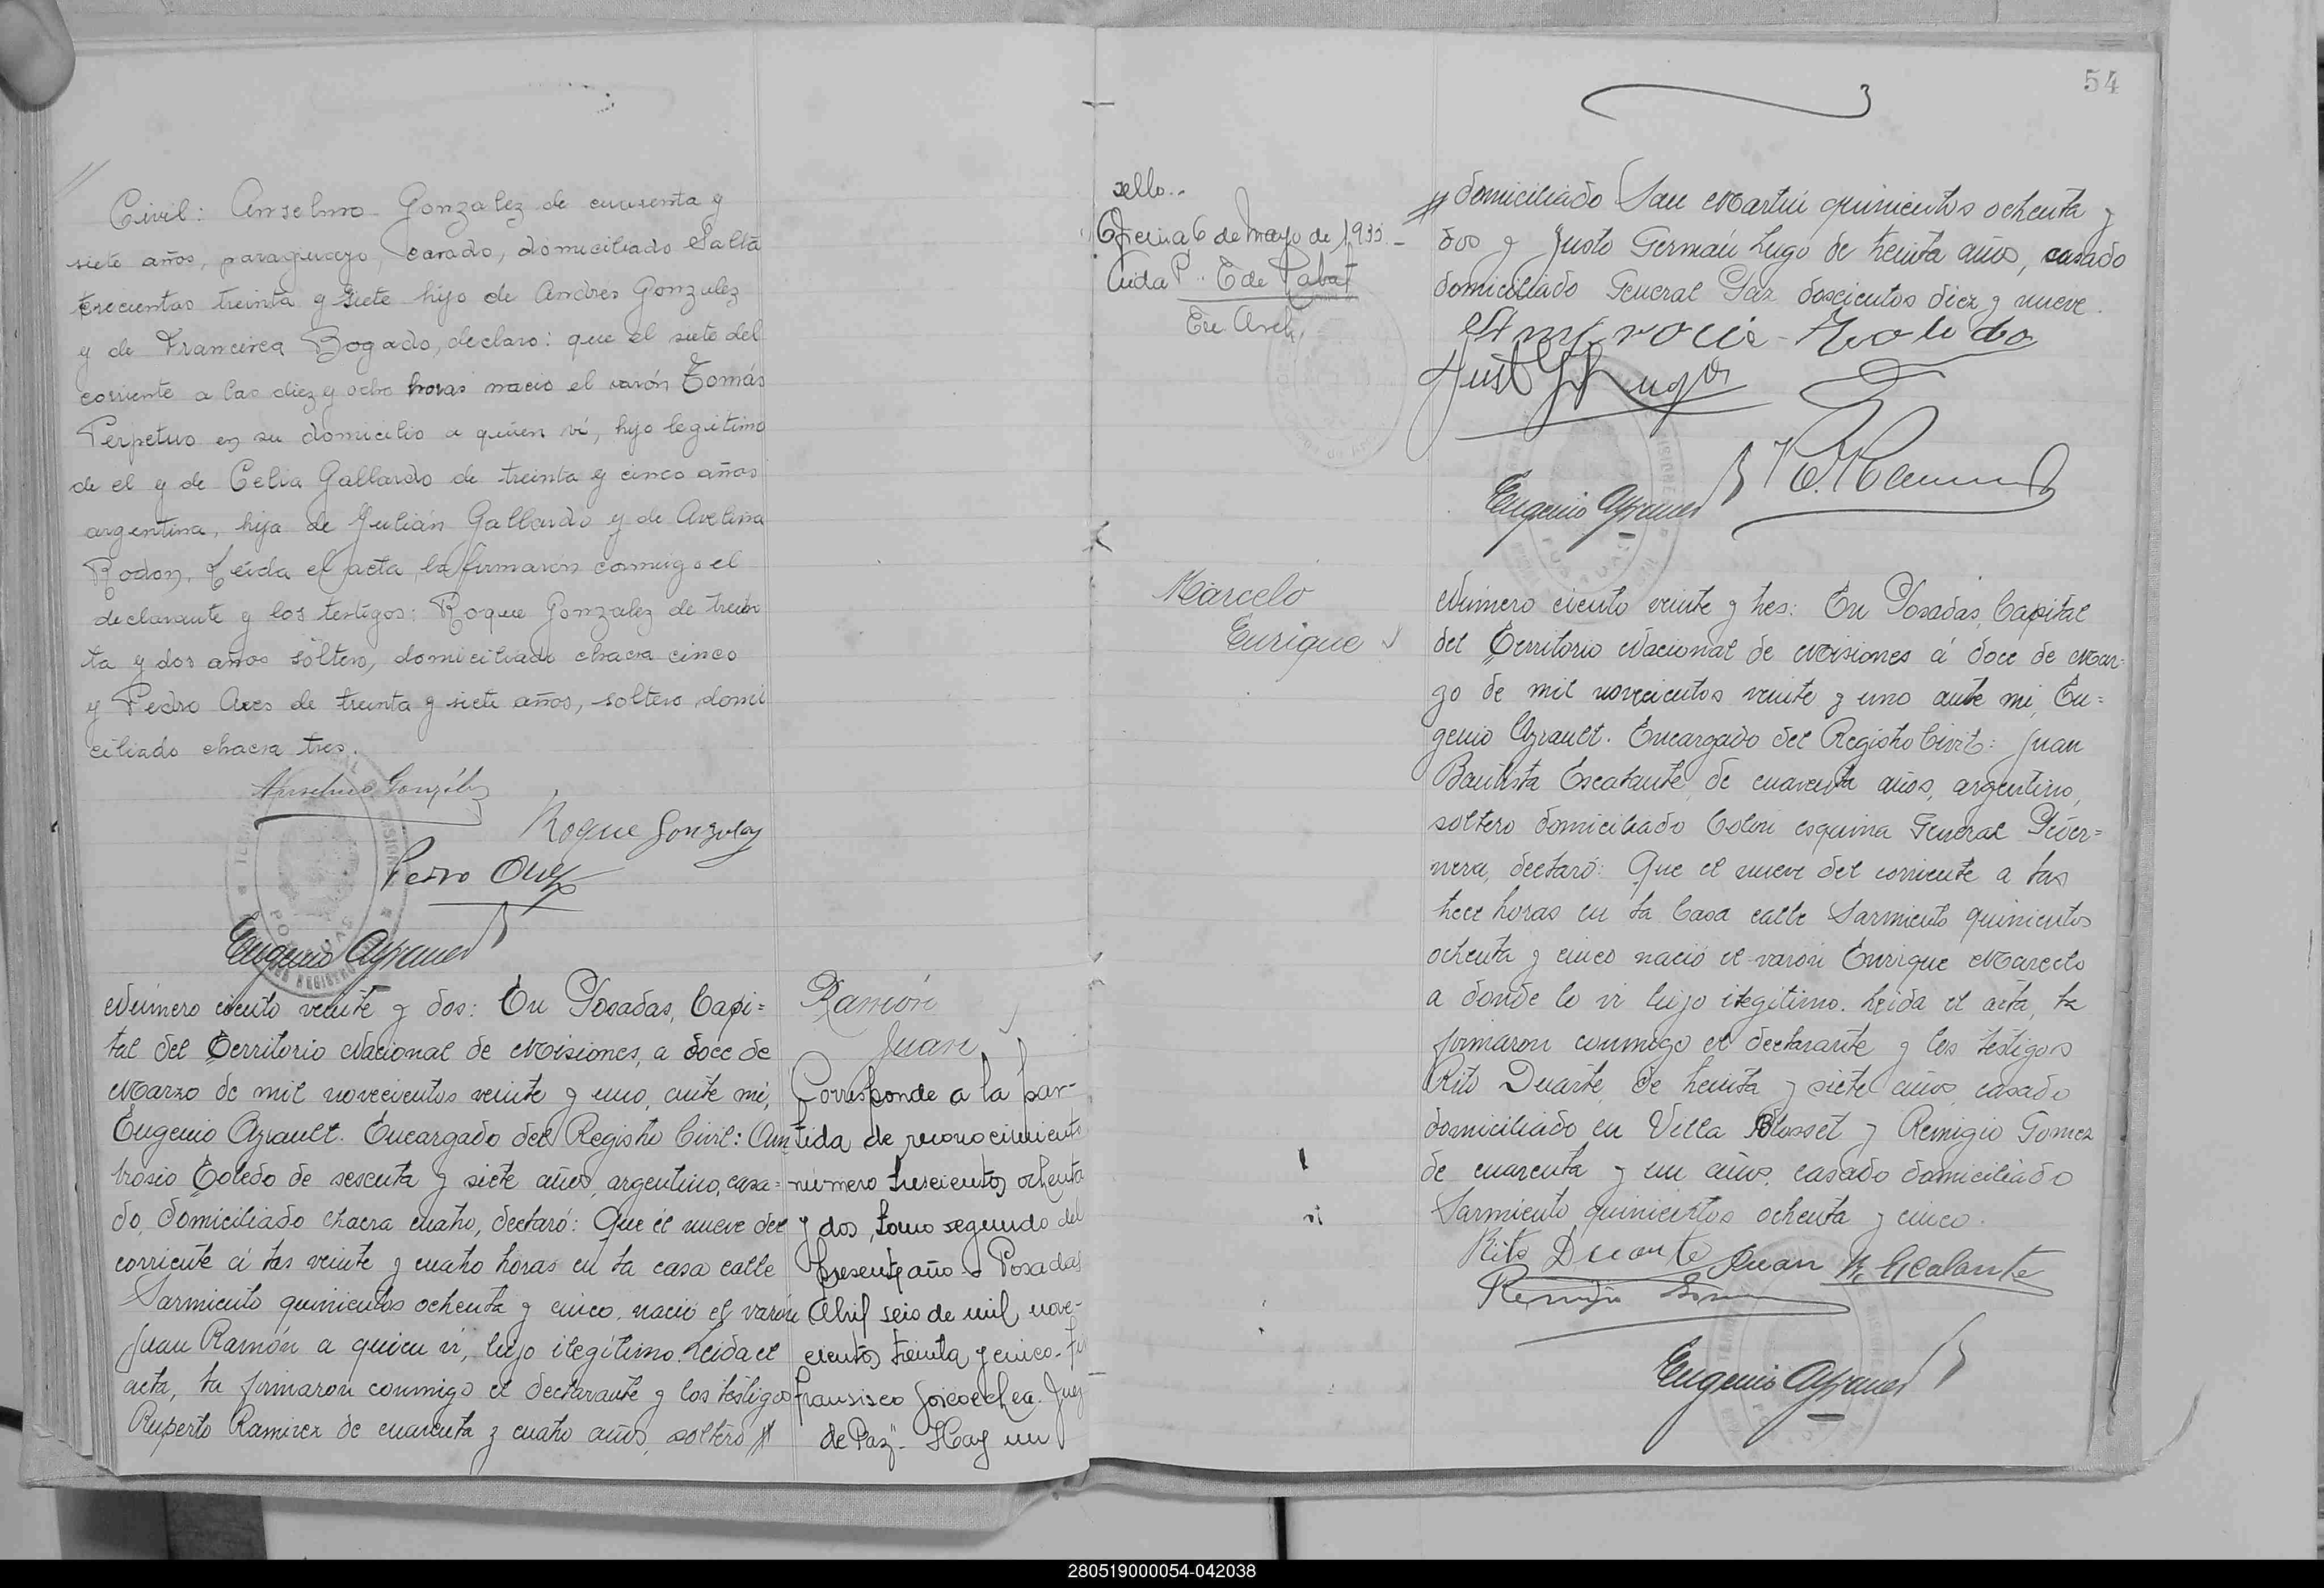 Civil: Anselmo Gonzalez de cuarenta y
siete años, paraguayo, casado, domiciliado Salta
trecientas treinta y siete hijo de Andres Gonzalez
y de Francisca Bogado, declaro: que el siete del
corriente a las diez y ocho horas nacio el varón Tomás
Perpetuo en su domicilio a quien vi, hijo legitimo
de el y de Celia Gallardo de treinta y cinco años
argentina, hija de Julián Gallardo y de Avelina
Rodon. Leida el acta, la firmaron conmigo el
declarante y los testigos: Roque Gonzalez de trein
ta y dos años soltero, domiciliado chacra cinco
y Pedro de treinta y siete años, soltero, domi
ciliado chacra tres.
Anselmo González
Roque Gonzalez
Pedro
Eugenio Ayrault
Número ciento veinte y dos: En Posadas, Capi=
tal del Territorio Nacional de Misiones, a doce de
Marzo de mil novecientos veinte y uno, ante mi,
Eugenio Ayrault. Encargado del Registro Civil: Am
brosio Toledo de sesenta y siete años, argentino, casa=
do, domiciliado chacra cuatro, declaró: Que el nueve del
corriente á las veinte y cuatro horas en la casa calle
Sarmiento quinientos ochenta y cinco, nació el varón
Juan Ramón a quien vi, hijo ilegítimo. Leida el
acta, la firmaron conmigo el declarante y los testigos
Ruperto Ramirez de cuarenta y cuatro años, soltero //
Ramón
Juan
Corresponde a la par-
tida de reconocimiento
numero trescientos ochenta
y dos, tomo segundo del
presente año - Posadas
Abril seis de mil nove-
cientos treinta y cinco-
Fransisco Goicoechea. Juez
de Paz"- Hay un
54
sello..
Oficina 6 de Mayo de 1935.-
Aida P. T de Labat
Enc. Arch.
// domiciliado San Martín quinientos ochenta y
dos y Justo Germán Lugo de treinta años, casado
domiciliado General Paz doscientos diez y nueve.
Ambrocio Toledo
Justo G Lugo
Eugenio Ayrault
Marcelo
Enrique
Número ciento veinte y tres: En Posadas, Capital
del Territorio Nacional de Misiones á doce de Mar=
zo de mil novecientos veinte y uno ante mi, Eu=
genio Ayrault. Encargado del Registro Civil: Juan
Bautista Escalante, de cuarenta años, argentino,
soltero domiciliado Colón esquina General Peder=
nera, declaró: Que el nueve del corriente a las
trece horas en la Casa calle Sarmiento quinientos
ochenta y cinco nació el varón Enrique Marcelo
a donde lo vi hijo ilegítimo. Leida el acta, la
firmaron conmigo el declarante y los testigos
Rito Duarte, de treinta y siete años, casado
domiciliado en Villa Blosset y Remigio Gomez
de cuarenta y un años, casado domiciliado
Sarmiento quinientos ochenta y cinco.
Rito Duarte Juan B. Escalante
Remigio Gomez
Eugenio Ayrault
280519000054-042038